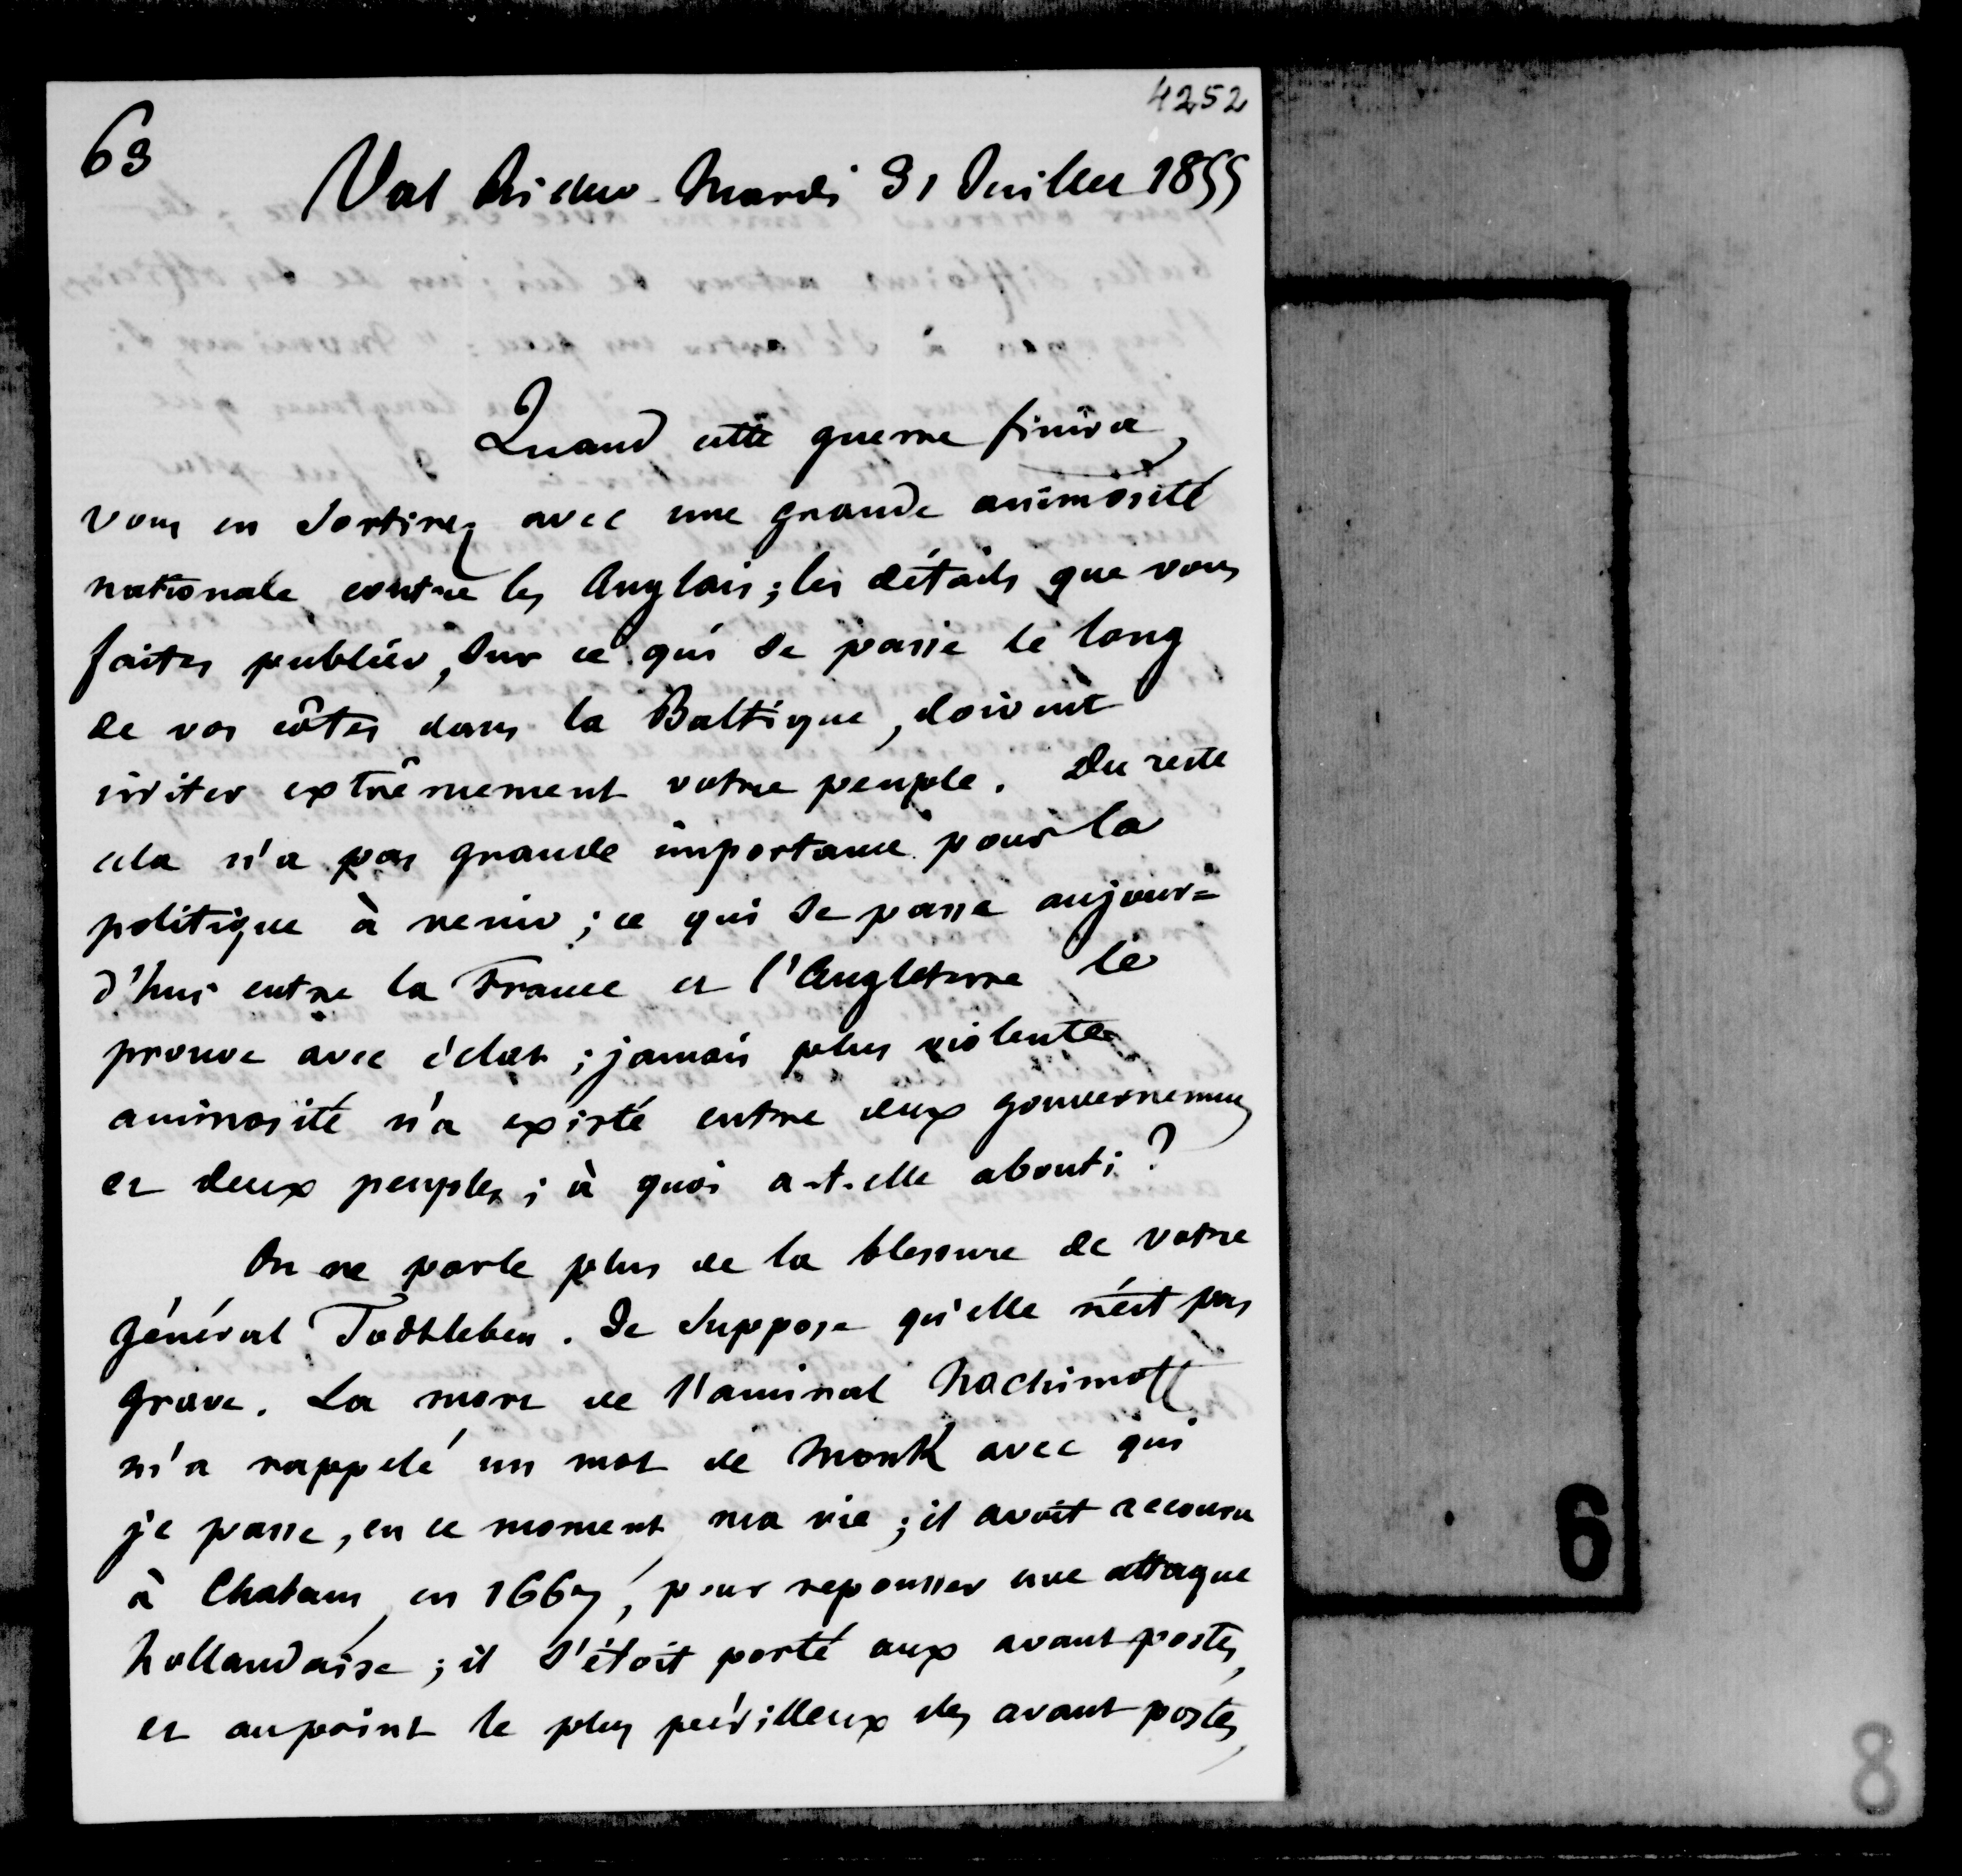 4252
63
Val Richer. Mardi 31 Juillet 1855
Quand cette guerre finira,
vous en sortirez avec une grande animosité
nationale contre les Anglais ; les détails que vous
faites publier, sur ce qui se passe le long
de vos côtes dans la Baltique, doivent
irriter extrêmement votre peuple. Du reste
cela n'a pas grande importance pour la
politique à venir ; ce qui se passe aujour=
d'hui entre la France et l'Angleterre le
prouve avec éclat ; jamais plus violente
animosité n'a existé entre deux gouvernemens
et deux peuples ; à quoi a-t-elle abouti ?
On ne parle plus de la blessure de votre
général Todtleben. Je suppose qu'elle n'est pas
grave. La mort de l'amiral Nachimoff
m'a rappelé un mot de Monk avec qui
je passe, en ce moment, ma vie ; il avoit accouru
à Chatam, en 1667, pour repousser une attaque
hollandaise ; il s'étoit porté aux avant-postes,
et au point le plus périlleux des avant-postes,
6
8